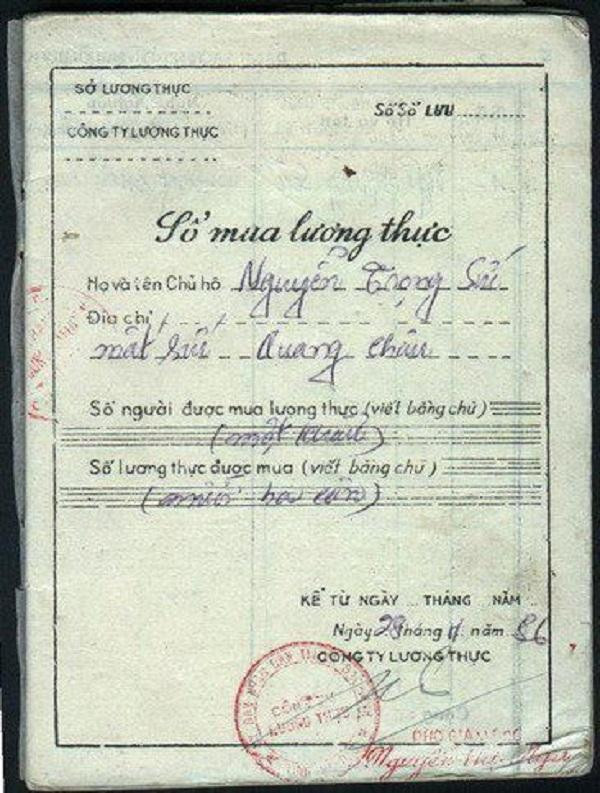 SỞ LƯƠNG THỰC
Số Sổ LƯU
CÔNG TY LƯƠNG THỰC
Sổ mua lương thực
Họ và tên Chủ hộ Nguyễn Trọng Sử
Địa chỉ
mất sức Quang Châu
Số người được mua lương thực (viết bằng chữ)
(một khẩu)
Số lương thực được mua (viết bằng chữ)
(mười ba cân)
KỂ TỪ NGÀY THÁNG NĂM
Ngày 28 tháng 11 năm 86
CÔNG TY LƯƠNG THỰC
CÔNG TY
LƯƠNG THỰC
PHÓ GIÁM ĐỐC
Nguyễn